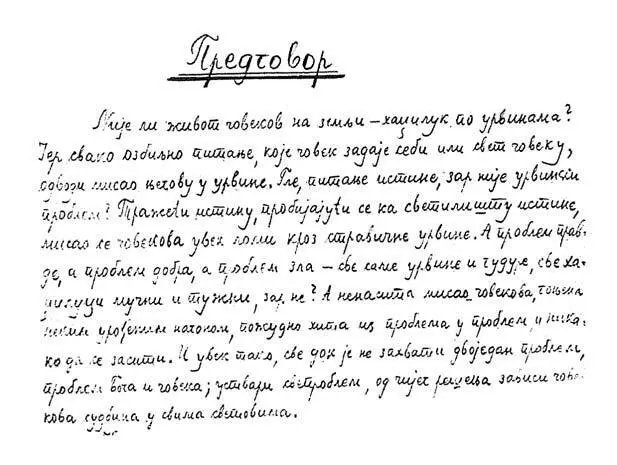 Предговор
Није ли живот човеков на земљи – хаџилук по урвинама?
Јер свако озбиљно питање, које човек задаје себи или свет човеку,
одвози мисао његову у урвине. Гле, питање истине, зар није урвински
проблем? Тражећи истину, пробијајући се ка светилишту истине,
мисао се човекова увек ломи кроз стравичне урвине. А проблем прав-
де, а проблем добра, а проблем зла – све саме урвине и чудује, све ха-
мучни и тужни, зар не? А ненасита мисао човекова, гоњена
неким урођеним нагоном, пожудно хита из проблема у проблем, и ника-
ко да се засити. И увек тако, све док је не захвати двоједан проблем,
проблем Бога и човека; уствари свепроблем, од чијег решења зависи чове-
кова судбина у свима световима.